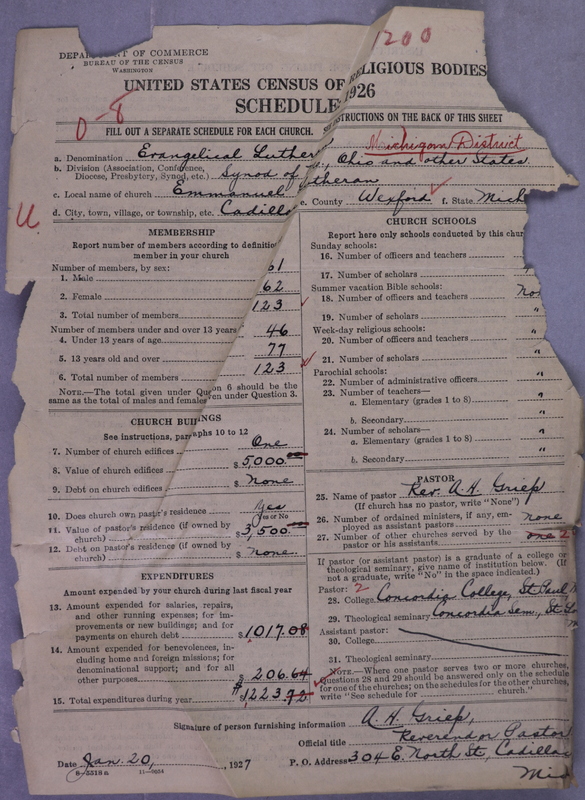 1200
DEPARTMENT OF COMMERCE
BUREAU OF THE CENSUS
WASHINGTON
UNITED STATES CENSUS OF RELIGIOUS BODIES
SCHEDULE 1926
0-8
FILL OUT A SEPARATE SCHEDULE FOR EACH CHURCH. INSTRUCTIONS ON THE BACK OF THIS SHEET
Michigan District
a. Denomination Evangelical Luthern, Ohio and other States
b. Division (Association, Conference, Diocese, Presbytery, Synod, etc.) Synod of
c. Local name of church Emmanuel Lutheran
d. City, town, village, or township, etc. Cadillac e. County Wexford f. State Mich
U.
MEMBERSHIP
Report number of members according to definition
member in your church
Number of members, by sex:
1. Male 61
2. Female 62
3. Total number of members 123
Number of members under and over 13 years
4. Under 13 years of age 46
5. 13 years old and over 77
6. Total number of members 123
NOTE.—The total given under Question 6 should be the
same as the total of males and females given under Question 3.
CHURCH BUILDINGS
See instructions, paragraphs 10 to 12
7. Number of church edifices One
8. Value of church edifices $5,000.00
9. Debt on church edifices $ None
10. Does church own pastor's residence Yes
Yes or No
11. Value of pastor's residence (if owned by
church) $3,500.00
12. Debt on pastor's residence (if owned by
church) $ None.
EXPENDITURES
Amount expended by your church during last fiscal year
13. Amount expended for salaries, repairs,
and other running expenses; for im-
provements or new buildings; and for
payments on church debt $1,017.08
14. Amount expended for benevolences, in-
cluding home and foreign missions; for
denominational support; and for all
other purposes $ 206.64
15. Total expenditures during year $1,223.72
CHURCH SCHOOLS
Report here only schools conducted by this chur
Sunday schools:
16. Number of officers and teachers
17. Number of scholars "
Summer vacation Bible schools:
18. Number of officers and teachers Non
19. Number of scholars "
Week-day religious schools:
20. Number of officers and teachers "
21. Number of scholars "
Parochial schools:
22. Number of administrative officers "
23. Number of teachers—
a. Elementary (grades 1 to 8) "
b. Secondary "
24. Number of scholars—
a. Elementary (grades 1 to 8) "
b. Secondary "
PASTOR
25. Name of pastor Rev. A. H. Griep
(If church has no pastor, write "None")
26. Number of ordained ministers, if any, em-
ployed as assistant pastors none
27. Number of other churches served by the
pastor or his assistants one 2
If pastor (or assistant pastor) is a graduate of a college or
theological seminary, give name of institution below. (If
not a graduate, write "No" in the space indicated.)
Pastor: 2
28. College Concordia College, St. Paul M
29. Theological seminary Concordia Sem., St. Lo
Assistant pastor:
30. College
31. Theological seminary
NOTE.—Where one pastor serves two or more churches,
Questions 28 and 29 should be answered only on the schedule
for one of the churches; on the schedules for the other churches,
write "See schedule for church."
Signature of person furnishing information A. H. Griep,
Official title Reverend or Pastor
Date Jan. 20, 1927 P. O. Address 304 E. North St, Cadillac
Mich
8-5518a 11-9054